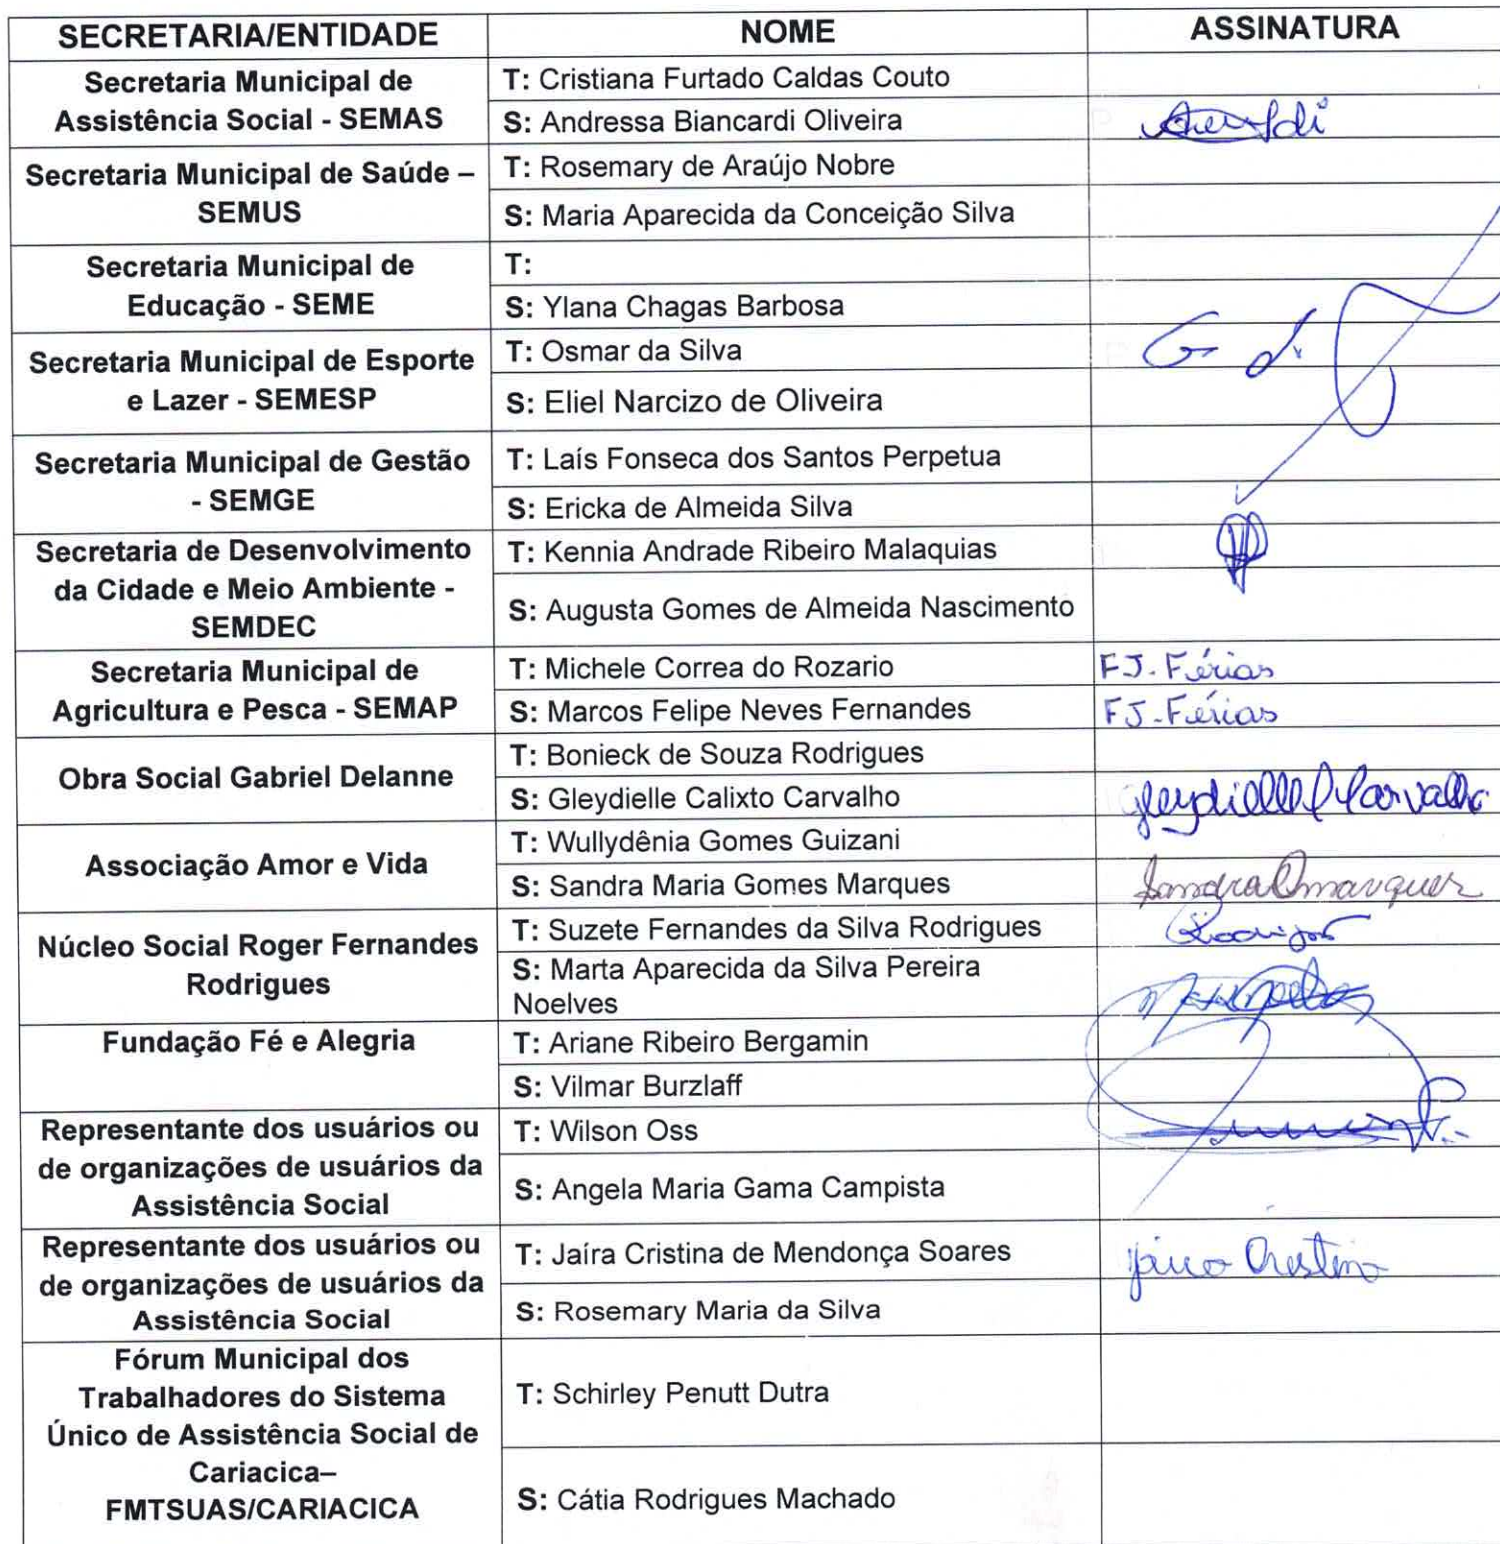 SECRETARIA/ENTIDADE NOME ASSINATURA
Secretaria Municipal de
Assistência Social - SEMAS
T: Cristiana Furtado Caldas Couto
S: Andressa Biancardi Oliveira
Secretaria Municipal de Saúde –
SEMUS
T: Rosemary de Araújo Nobre
S: Maria Aparecida da Conceição Silva
Secretaria Municipal de
Educação - SEME
T:
S: Ylana Chagas Barbosa
Secretaria Municipal de Esporte
e Lazer - SEMESP
T: Osmar da Silva
S: Eliel Narcizo de Oliveira
Secretaria Municipal de Gestão
- SEMGE
T: Laís Fonseca dos Santos Perpetua
S: Ericka de Almeida Silva
Secretaria de Desenvolvimento
da Cidade e Meio Ambiente -
SEMDEC
T: Kennia Andrade Ribeiro Malaquias
S: Augusta Gomes de Almeida Nascimento
Secretaria Municipal de
Agricultura e Pesca - SEMAP
T: Michele Correa do Rozario FJ. Férias
S: Marcos Felipe Neves Fernandes FJ - Férias
Obra Social Gabriel Delanne
T: Bonieck de Souza Rodrigues
S: Gleydielle Calixto Carvalho Gleydielle C Carvalho
Associação Amor e Vida
T: Wullydênia Gomes Guizani
S: Sandra Maria Gomes Marques
Núcleo Social Roger Fernandes
Rodrigues
T: Suzete Fernandes da Silva Rodrigues
S: Marta Aparecida da Silva Pereira
Noelves
Fundação Fé e Alegria
T: Ariane Ribeiro Bergamin
S: Vilmar Burzlaff
Representante dos usuários ou
de organizações de usuários da
Assistência Social
T: Wilson Oss
S: Angela Maria Gama Campista
Representante dos usuários ou
de organizações de usuários da
Assistência Social
T: Jaíra Cristina de Mendonça Soares
S: Rosemary Maria da Silva
Fórum Municipal dos
Trabalhadores do Sistema
Único de Assistência Social de
Cariacica–
FMTSUAS/CARIACICA
T: Schirley Penutt Dutra
S: Cátia Rodrigues Machado